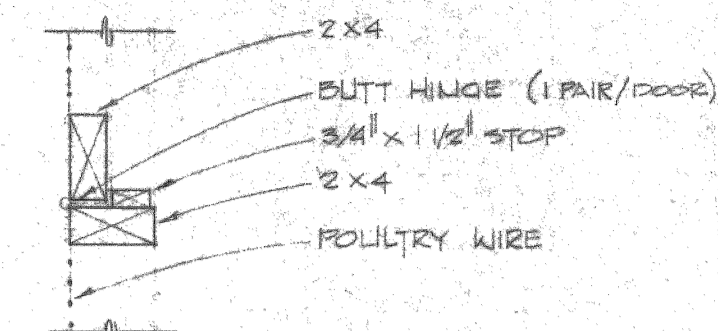 2 X 4
BUTT HINGE (1 PAIR/DOOR)
3/4" x 1 1/2" STOP
2 X 4
POULTRY WIRE